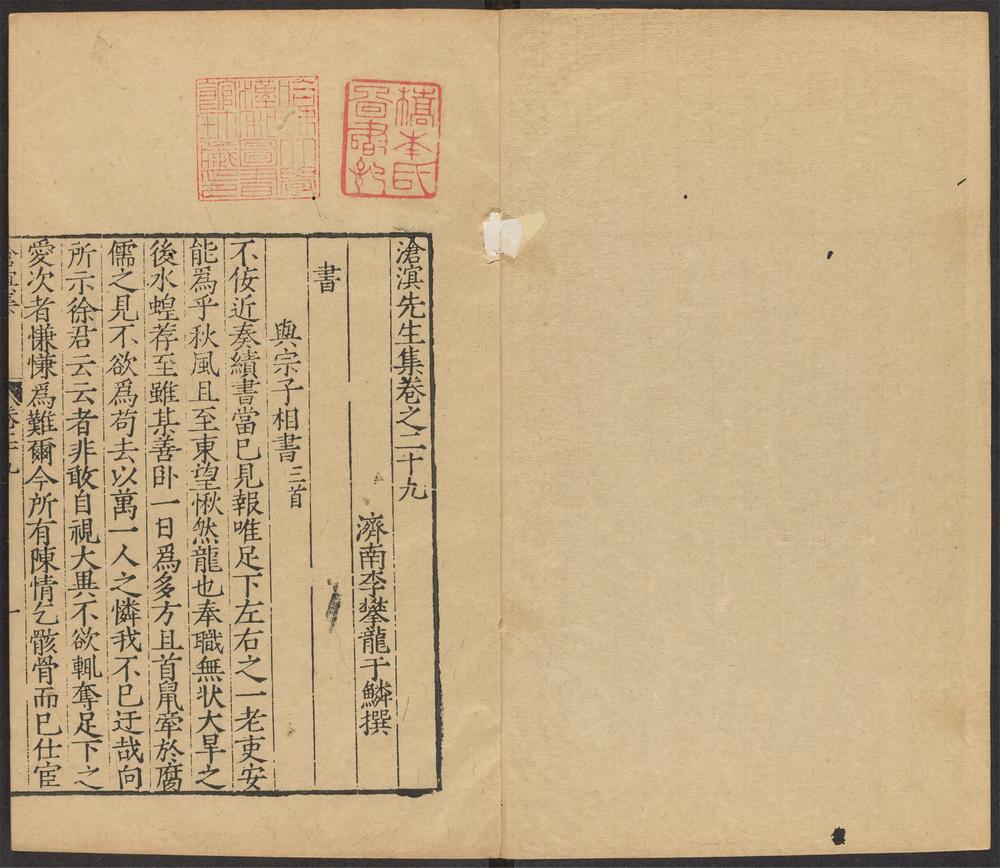 滄溟先生集卷之二十九
濟南李攀龍于鱗撰
書
與宗子相書三首
不佞近奏績書當已見報唯足下左右之一老吏安
能爲乎秋風且至東望愀然龍也奉職無狀大旱之
後水蝗荐至雖其善卧一日爲多方且首鼠牽於腐
儒之見不欲爲苟去以萬一人之憐我不已迂哉向
所示徐君云云者非敢自視大異不欲輒奪足下之
愛次者慊慊爲難爾今所有陳情乞骸骨而已仕宦
滄溟集
卷二十九
一
橋本氏
哈佛大學
漢和圖書
館珍藏印